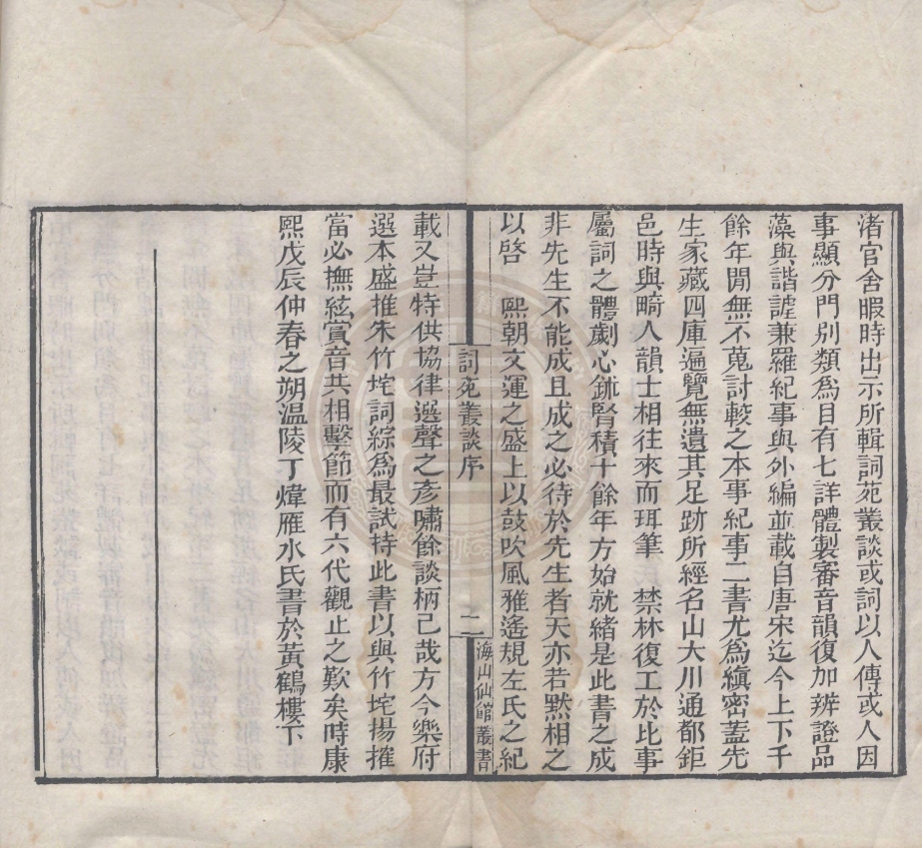 渚官舍暇時出示所輯詞苑叢談或詞以人傳或人因
事顯分門別類爲目有七詳體製審音韻復加辨證品
藻與諧謔兼羅紀事與外編並載自唐宋迄今上下千
餘年閒無不蒐討較之本事紀事二書尤爲縝密蓋先
生家藏四庫遍覽無遺其足跡所經名山大川通都鉅
邑時與畸人韻士相往來而珥筆　禁林復工於比事
屬詞之體劌心鉥腎積十餘年方始就緒是此書之成
非先生不能成且成之必待於先生者天亦若默相之
以啓　熙朝文運之盛上以鼓吹風雅遙規左氏之紀
詞苑叢談序
二
海山仙館叢書
載又豈特供協律選聲之彥嘯餘談柄已哉方今樂府
選本盛推朱竹垞詞綜爲最試持此書以與竹垞揚搉
當必撫絃賞音共相擊節而有六代觀止之歎矣時康
熙戊辰仲春之朔溫陵丁煒雁水氏書於黃鶴樓下